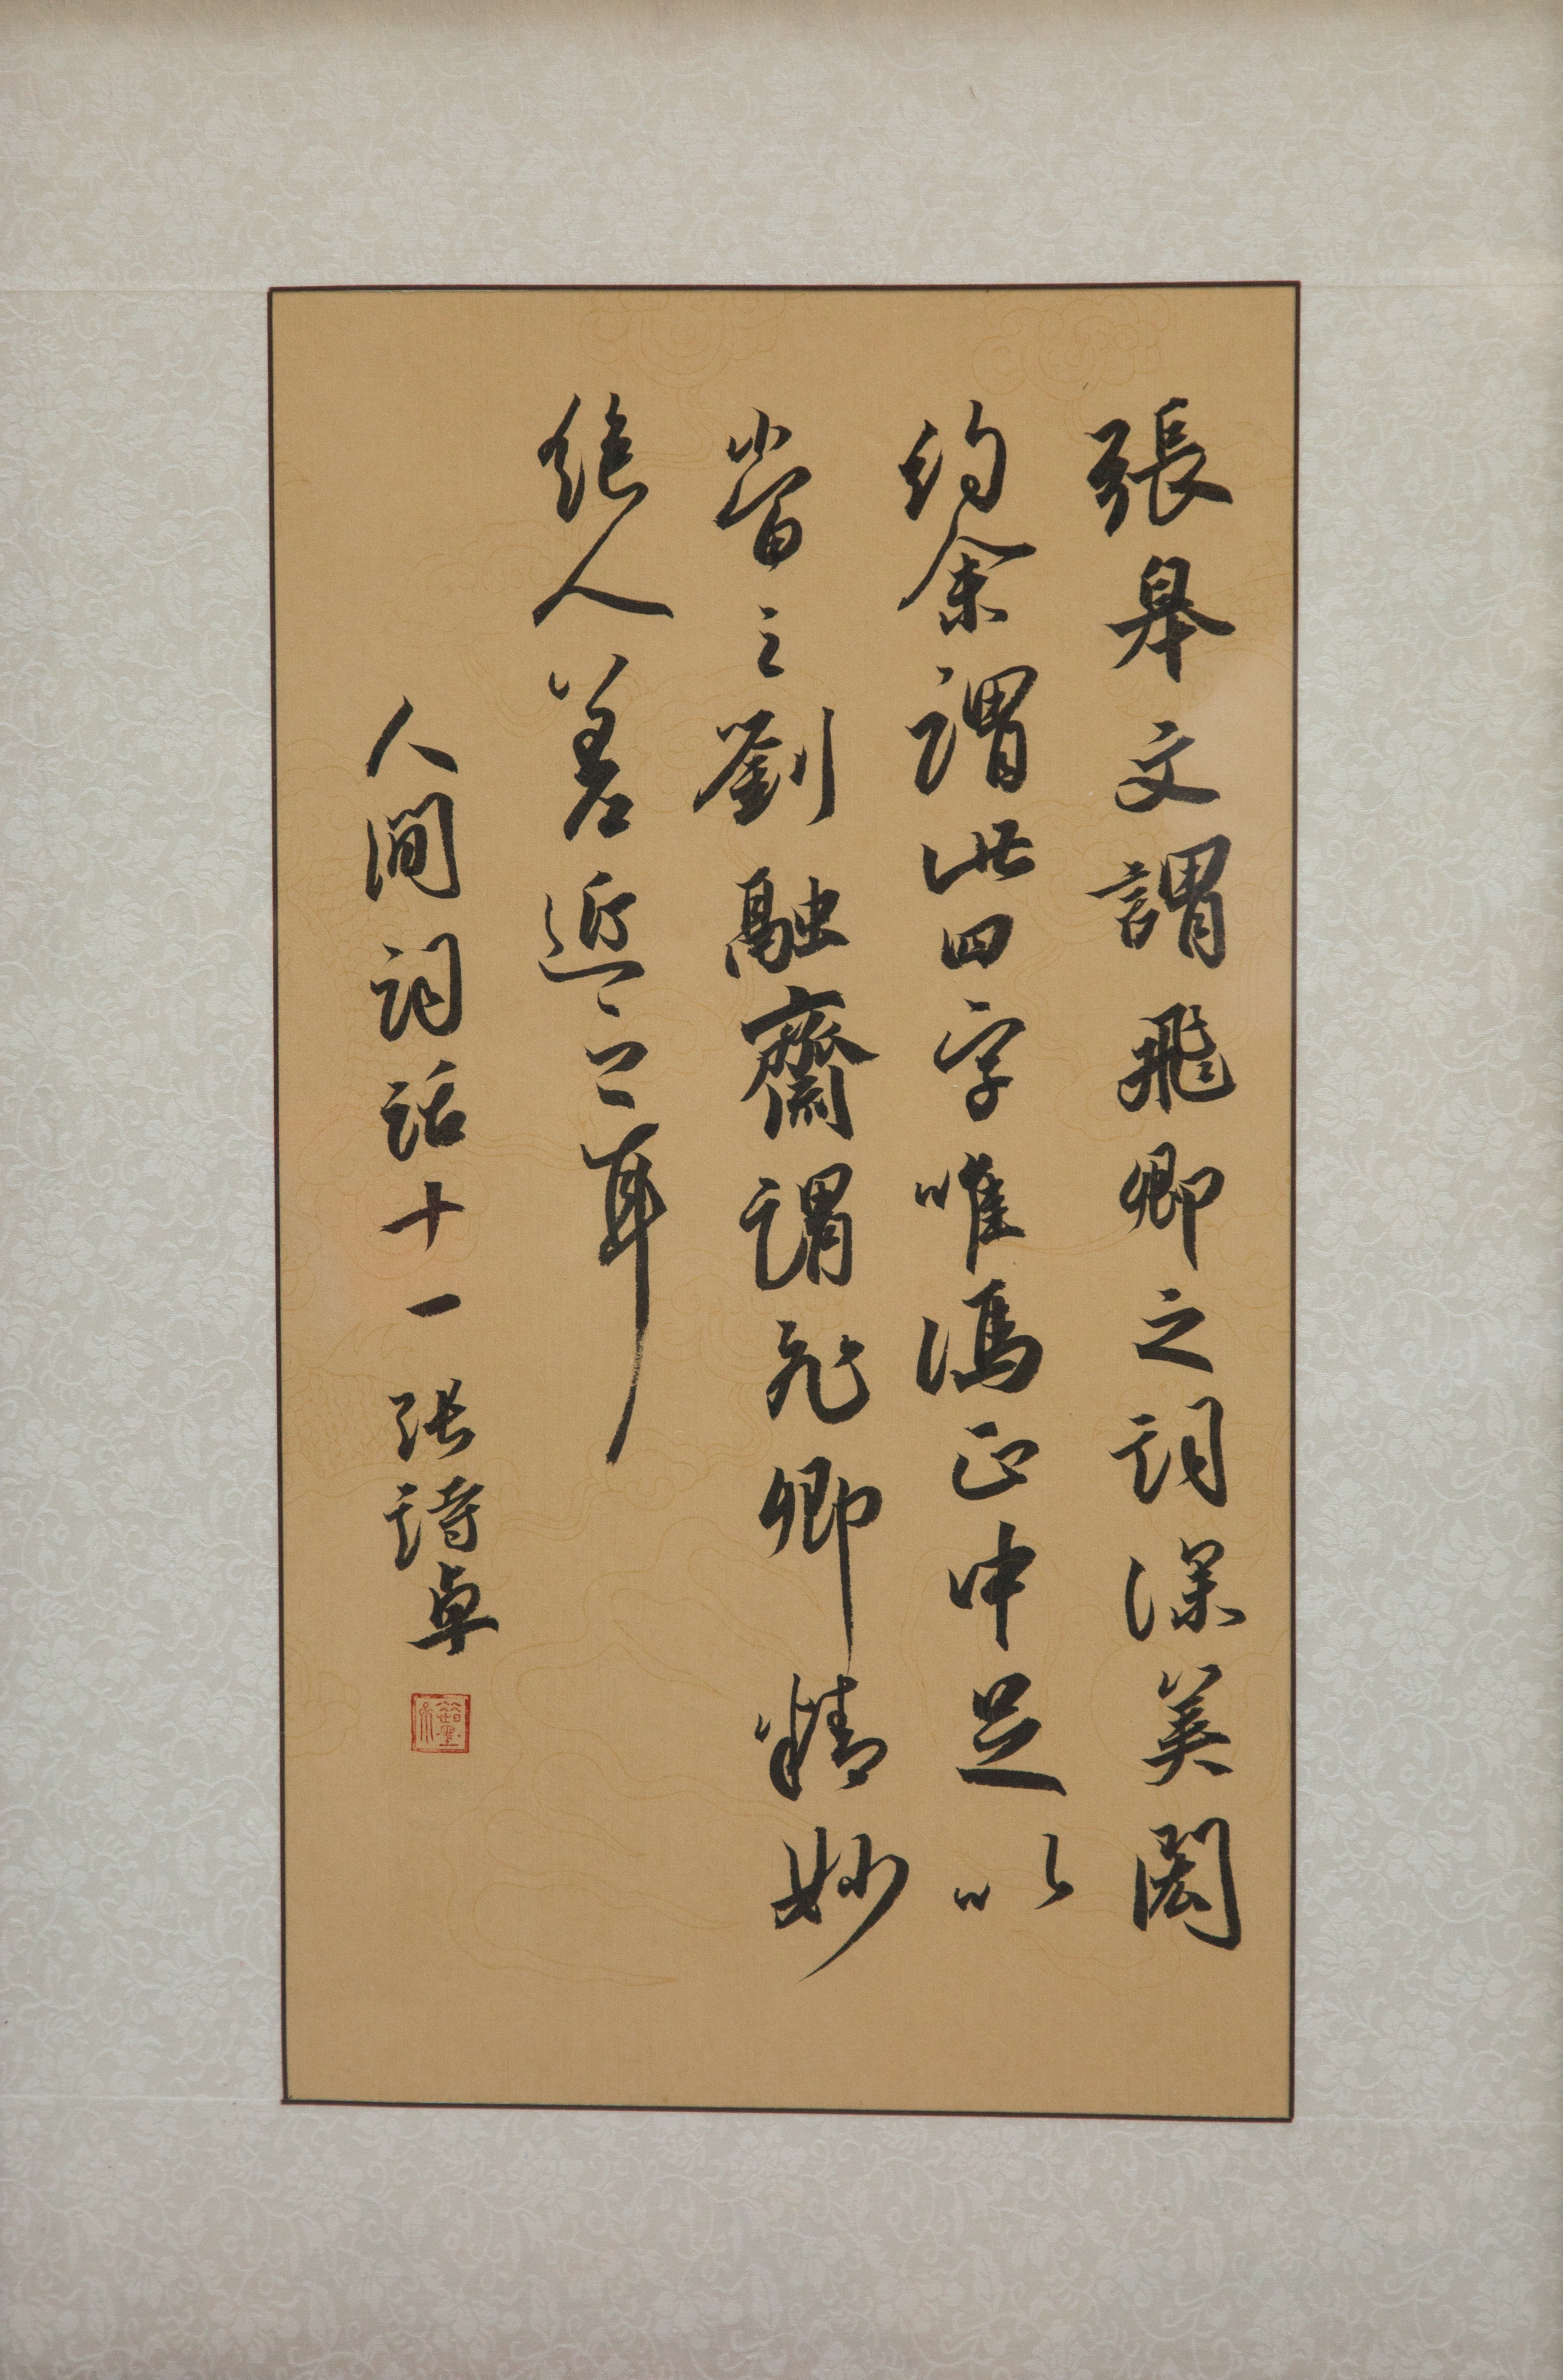 張皋文謂飛卿之詞深美閎
約余謂此四字唯馮正中足以
當之劉融齋謂飛卿精妙
絕人差近之耳
人間詞話十一 张詩卓